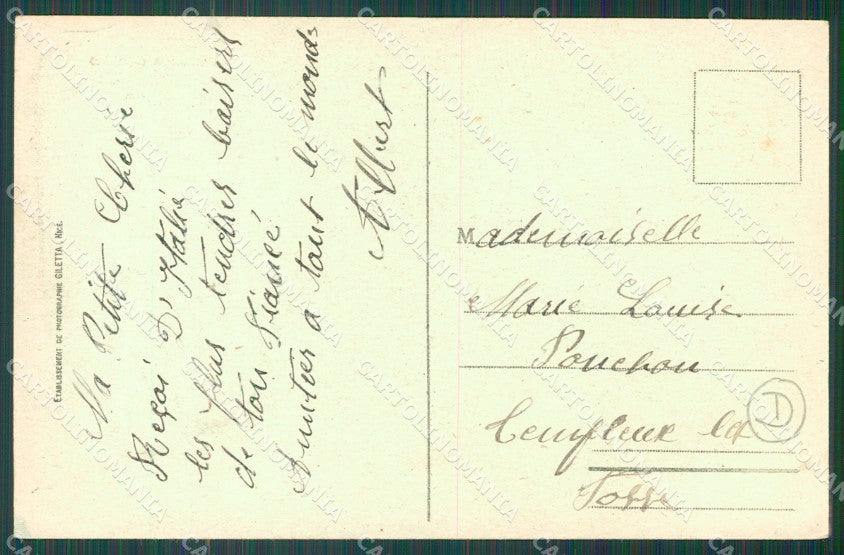 Ma Petite Cherie
Reçoi D'Italie
les plus tendres baisers
de ton Fiancé
Amitiés a tout le monde
Albert
ETABLISSEMENT DE PHOTOGRAPHIE GILETTA, NICE.
Mademoiselle
Marie Louise
Ponchon
la
Fosse
D
CARTOLINOMANIA